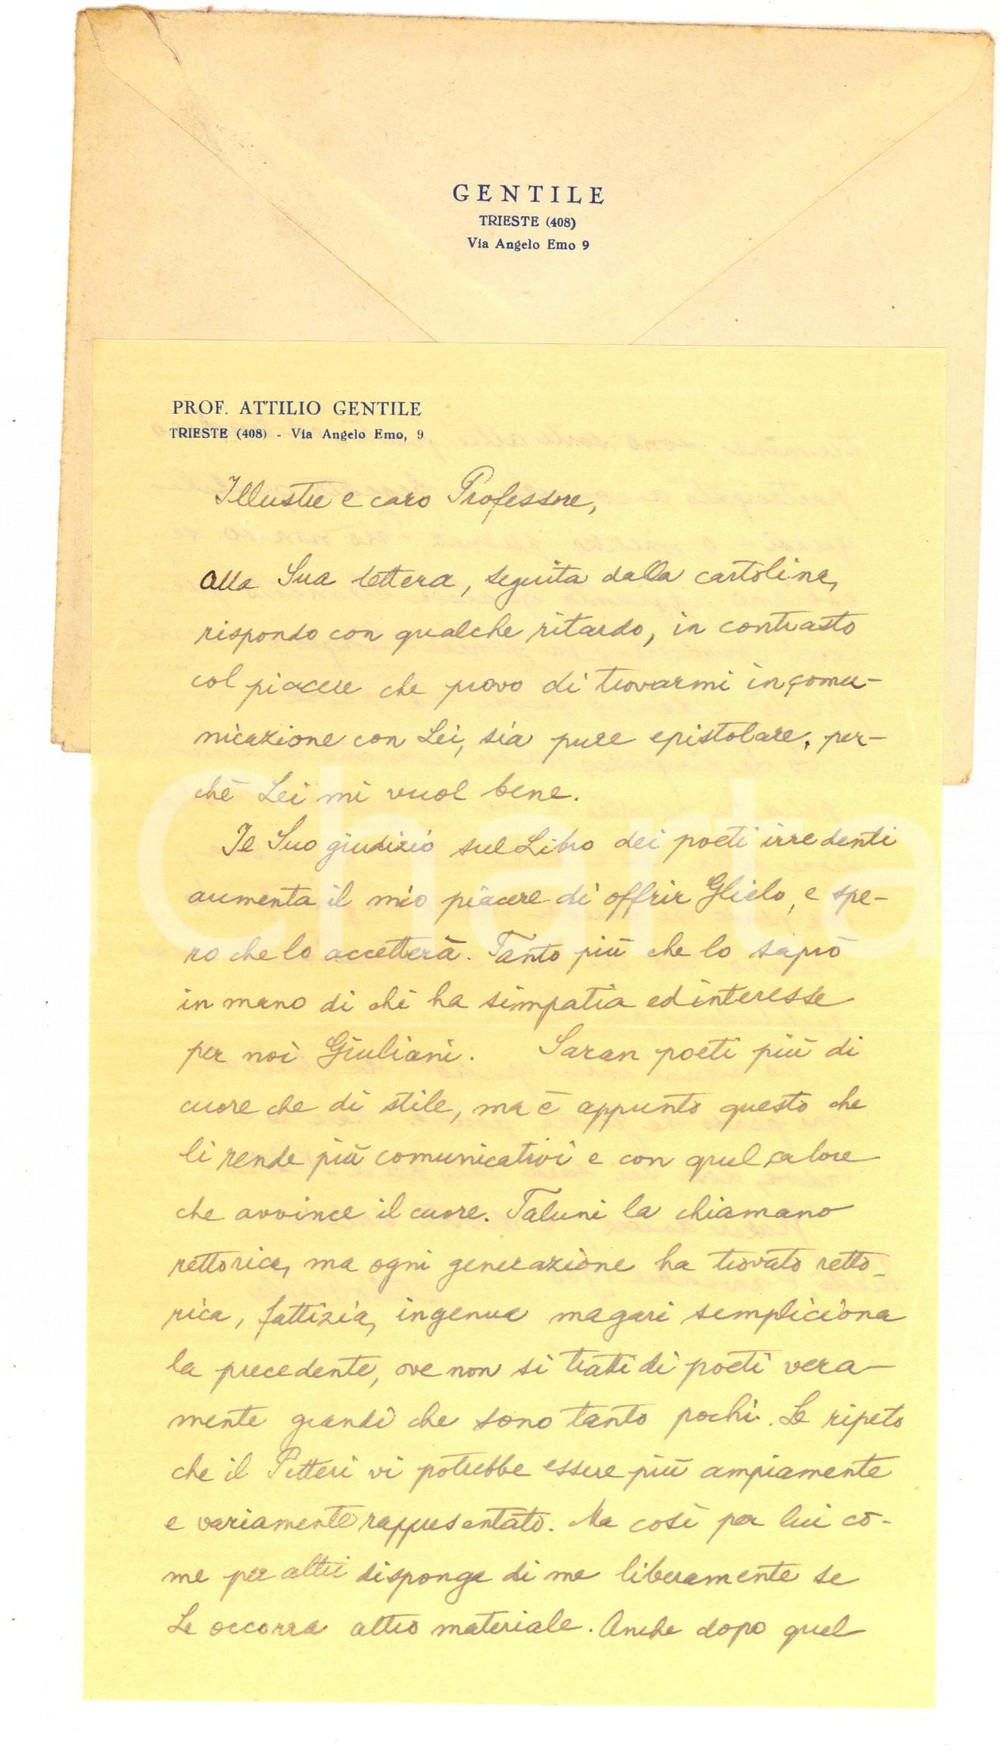 GENTILE
TRIESTE (408)
Via Angelo Emo 9
PROF. ATTILIO GENTILE
TRIESTE (408) - Via Angelo Emo, 9
Illustre e caro Professore,
alla Sua lettera, seguita dalla cartolina,
rispondo con qualche ritardo, in contrasto
col piacere che provo di trovarmi in comu-
nicazione con Lei, sia pure epistolare, per-
chè Lei mi vuol bene.
Il Suo giudizio sul Libro dei poeti irredenti
aumenta il mio piacere di offrir Glielo, e spe-
ro che lo accetterà. Tanto più che lo saprò
in mano di chi ha simpatia ed interesse
per noi Giuliani. Saran poeti più di
cuore che di stile, ma è appunto questo che
li rende più comunicativi e con quel calore
che avvince il cuore. Taluni la chiamano
rettorica, ma ogni generazione ha trovato retto-
rica, fattizia, ingenua magari sempliciona
la precedente, ove non si tratti di poeti vera-
mente grandi che sono tanto pochi. Le ripeto
che il Pitteri vi potrebbe essere più ampiamente
e variamente rappresentato. Ma così per lui co-
me per altri disponga di me liberamente se
Le occorra altro materiale. Anche dopo quel
Charta